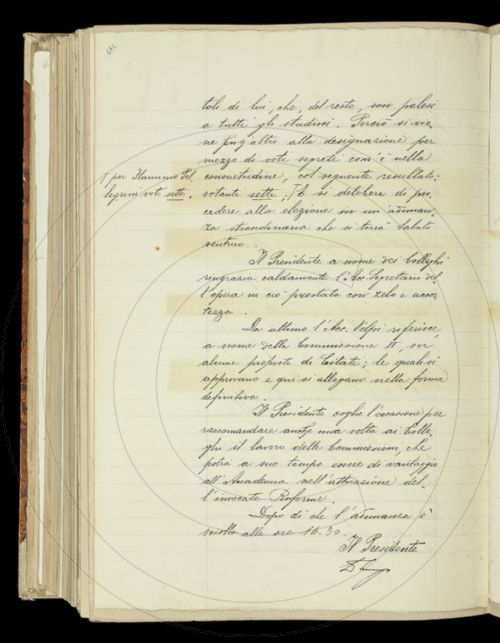 toli di lui, che, del resto, son palesi
a tutti gli studiosi. Perciò si vie-
ne senz'altro alla designazione per
mezzo di voti segreti com'è nella
consuetudine, col seguente resultato:
votanti sette. / E si delibera di pro-
cedere alla elezione in un'adunan-
za straordinaria che si terrà Sabato
venturo.
/ per Flaminio Pel-
legrini voti sette.
Il Presidente a nome dei Colleghi
ringrazia caldamente l'Acc. Segretario del-
l'opera in ciò prestata con zelo e accor-
tezza.
Da ultimo l'Acc. Volpi riferisce
a nome della Commissione
alcune proposte di Citati; le quali si
approvano e qui si allegano nella forma
definitiva.
Il Presidente coglie l'occasione per
raccomandare anche una volta ai Colle-
ghi il lavoro delle Commissioni, che
potrà a suo tempo essere di vantaggio
all'Accademia nell'attuazione del-
l'invocata Riforma.
Dopo di che l'adunanza è
sciolta alle ore 16.30.
Il Presidente